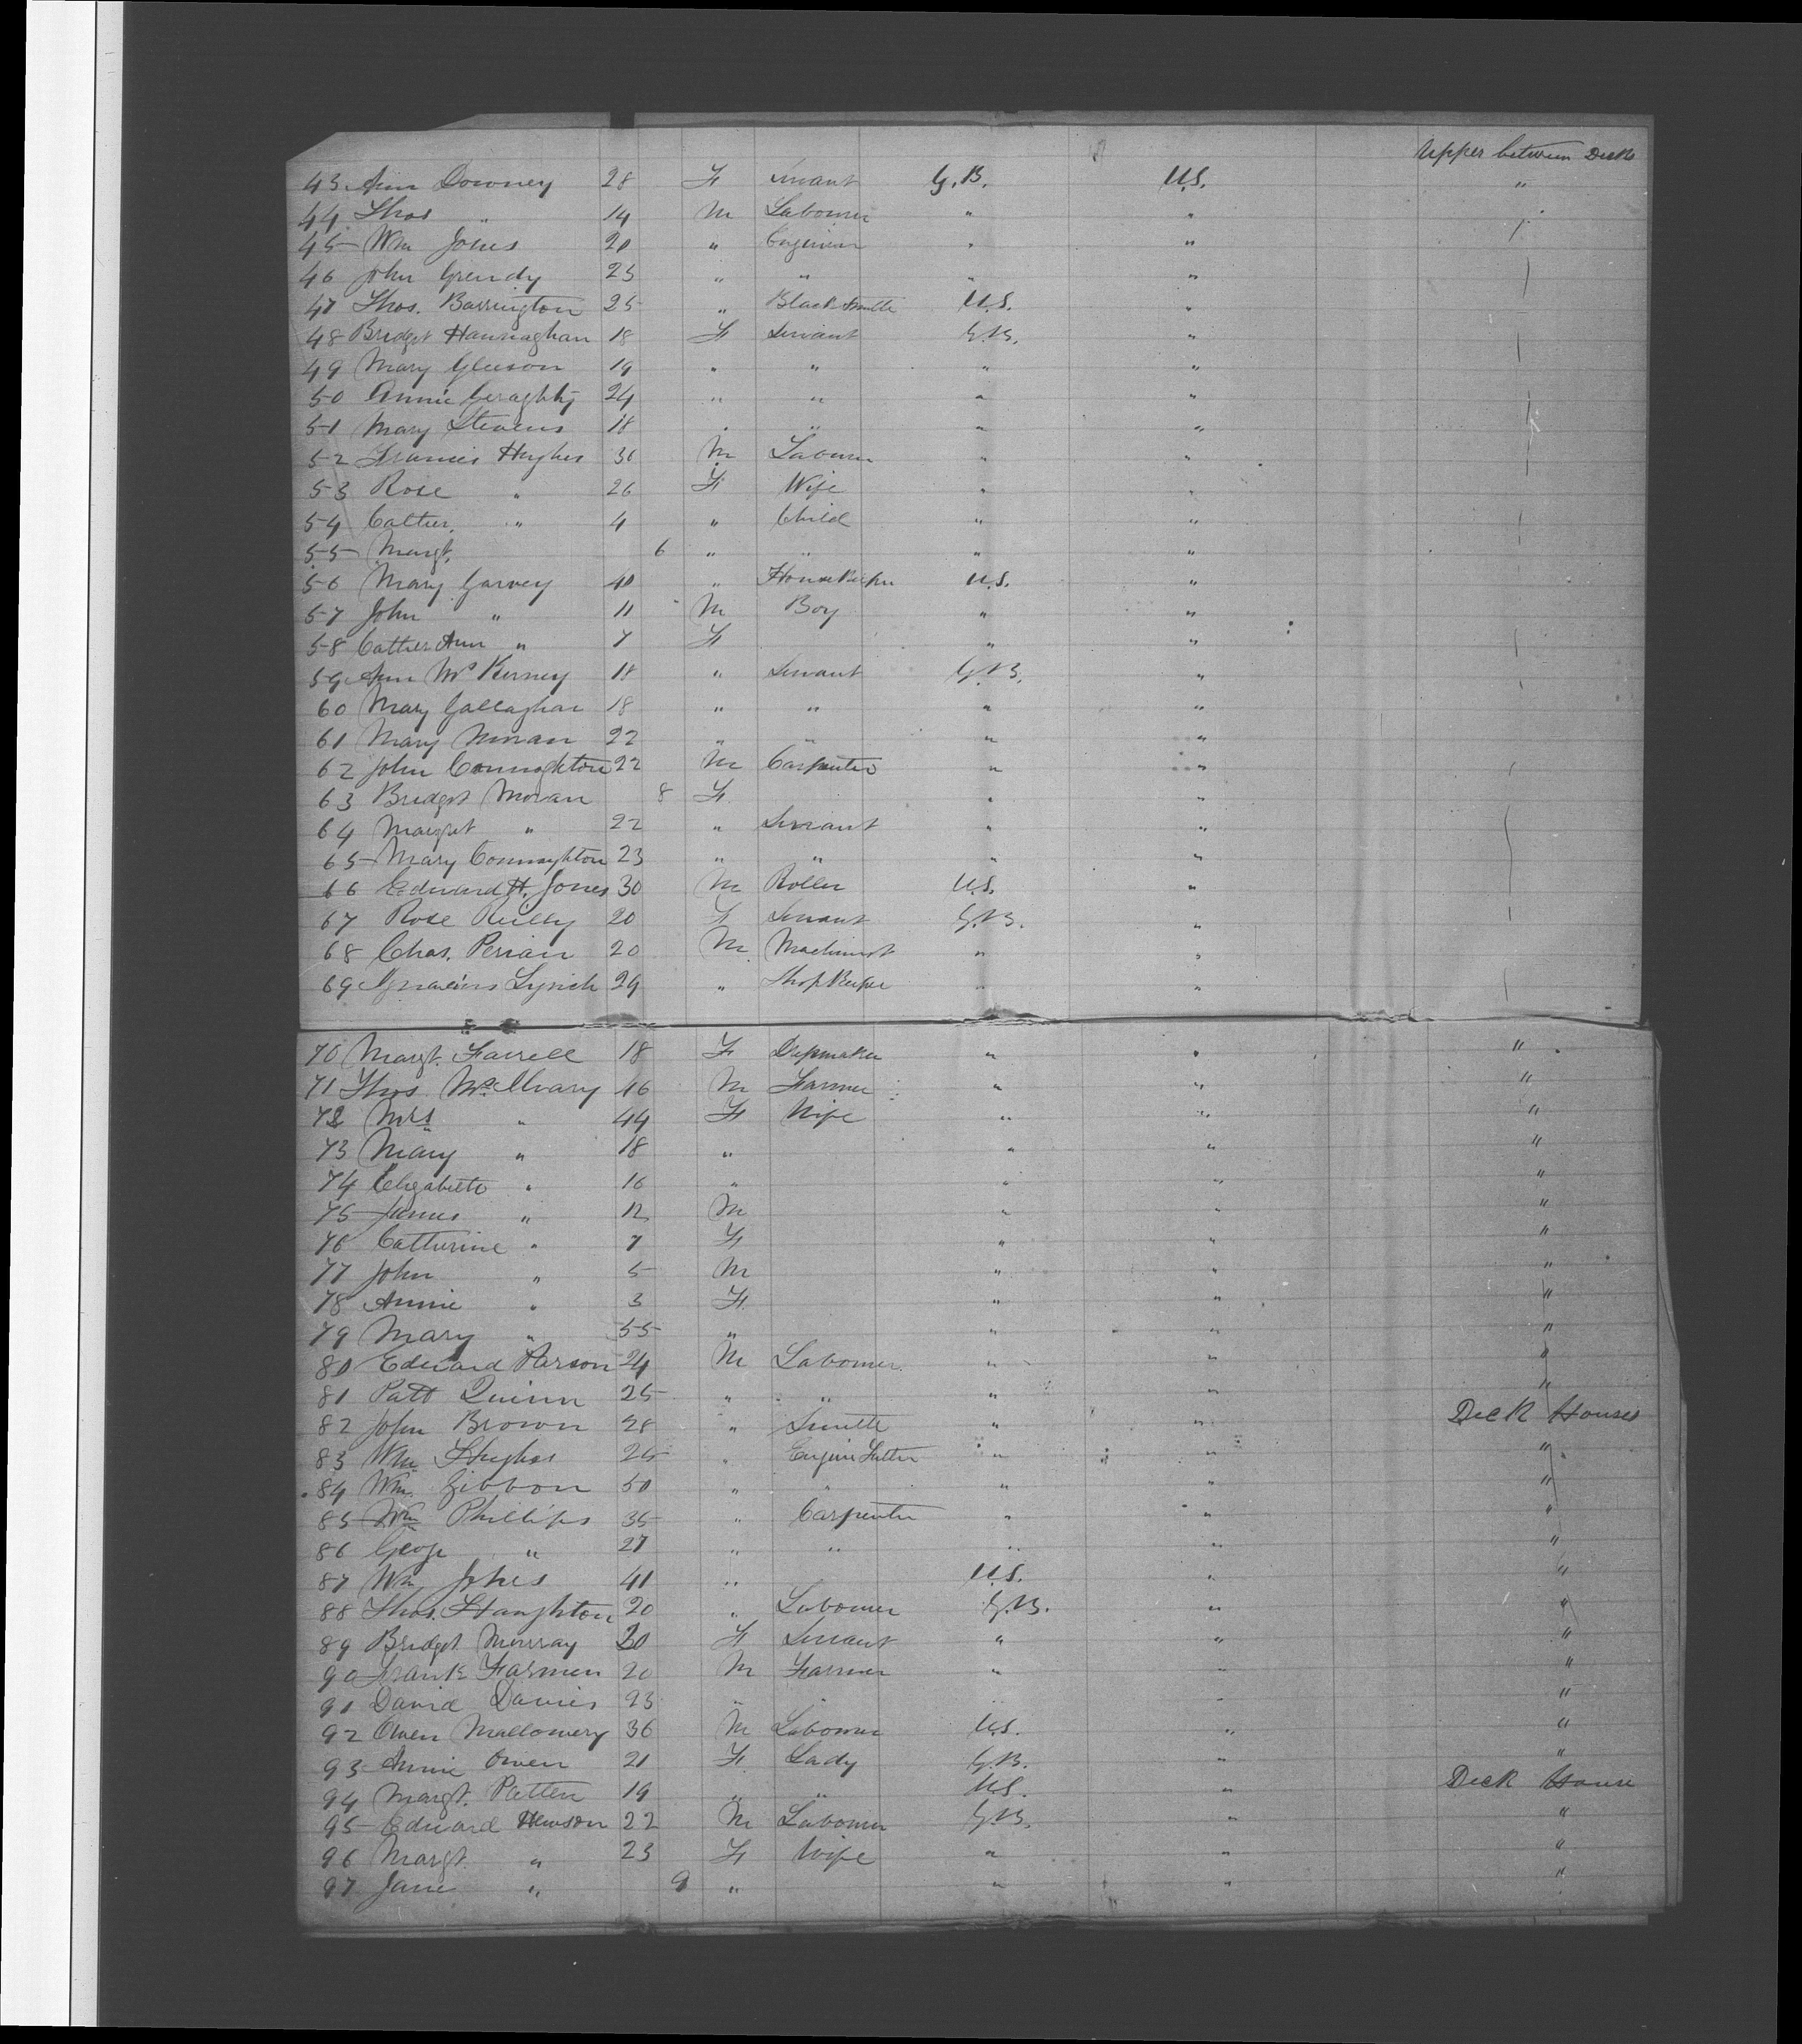 Upper between Deck
43 Ann Downey 28 F Servant G.B. U.S. "
44 Thos " 14 M Labourer " "
45 Wm Jones 20 " Engineer " "
46 John Grendy 25 " " " "
47 Thos. Barrington 25 " Black Smith U.S. "
48 Bridget Hannaghan 18 F Servant G.B. "
49 Mary Gleeson 19 " " " "
50 Annie Geraghty 24 " " " "
51 Mary Stevens 18 " " " "
52 Francis Hughes 36 M Labourer " "
53 Rose " 26 F Wife " "
54 Cather. " 4 " Child " "
55 Margt. 6 " " " "
56 Mary Garvey 40 " House Keeper U.S. "
57 John " 11 M Boy " "
58 Cather Ann " 7 F " "
59 Ann McKerney 18 " Servant G.B. "
60 Mary Gallaghan 18 " " " "
61 Mary Moran 22 " " " "
62 John Connoghton 22 M Carpenter " "
63 Bridget Moran 8 F " "
64 Margret " 22 " Servant " "
65 Mary Connoghton 23 " " " "
66 Edward H. Jones 30 M Roller U.S. "
67 Rose Reilly 20 F Servant G.B. "
68 Chas. Perian 20 M Machinist " "
69 Ignacius Lynch 29 " Shop Keeper " "
70 Margt. Farrell 18 F Dressmaker " " "
71 Thos McIlvary 46 M Farmer " " "
72 Mrs " 44 F Wife " " "
73 Mary " 18 " " " "
74 Elizabeth " 16 " " " "
75 James " 12 M " " "
76 Catherine " 7 F " " "
77 John " 5 M " " "
78 Annie " 3 F " " "
79 Mary " 55 " " " "
80 Edward Parson 24 M Labourer " " "
81 Patt Quinn 25 " " " " "
82 John Brown 28 " Smith " " Deck Houses
83 Wm Hughes 25 " Engine Fitter " " "
84 Wm. Gibbon 50 " " " " "
85 Wm Phillips 35 " Carpenter " " "
86 George " 27 " " " " "
87 Wm Jones 41 " U.S. " "
88 Thos. Haughton 20 " Labourer G.B. " "
89 Bridget Murray 20 F Servant " " "
90 Frank Farmer 20 M Farmer " " "
91 David Davies 23 " " " " "
92 Owen Mallowery 36 M Labourer U.S. " "
93 Annie Owen 21 F Lady G.B. " "
94 Margt. Patten 19 " " U.S. " Deck House
95 Edward Hewson 22 M Labourer G.B. " "
96 Margt. " 23 F Wife " " "
97 Jane " 9 " " " "